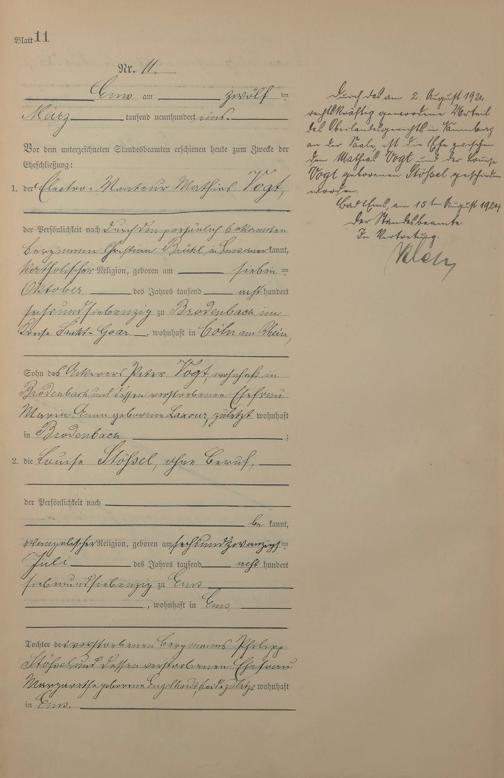 Blatt 11
Nr. 11.
Ems am zwölf ten
März tausend neunhundert eins.
Vor dem unterzeichneten Standesbeamten erschienen heute zum Zwecke der
Eheschließung:
1. der Electro-Monteur Mathias Vogt,
der Persönlichkeit nach durch den persönlich bekannten
Bergmann Christian in Ems anerkannt,
katholischer Religion, geboren am sieben ten
Oktober des Jahres tausend acht hundert
sechsundsiebenzig zu Brodenbach im
Kreise Sankt-Goar, wohnhaft in Cöln am Rhein,
Sohn des Ackerers Peter Vogt, wohnhaft in
Brodenbach und dessen verstorbenen Ehefrau
Maria Anna geborene zuletzt wohnhaft
in Brodenbach ;
2. die Louise Stößel, ohne Beruf,
der Persönlichkeit nach
be kannt,
evangelischer Religion, geboren am sechsundzwanzigs ten
Juli des Jahres tausend acht hundert
siebenundsiebenzig zu Ems
, wohnhaft in Ems
Tochter des verstorbenen Bergmanns Philipp
Stößel und dessen verstorbenen Ehefrau
Margarethe geborene beide zuletzt wohnhaft
in Ems.
Durch das am 2. August 1920
rechtskräftig gewordene Urteil
des Oberlandesgerichts in Naumburg
an der Saale, ist die Ehe zwischen
dem Mathias Vogt und der Louise
Vogt geborenen Stößel geschieden
worden.
Bad Ems, am 15 ten August 1920
Der Standesbeamte
In Vertretung